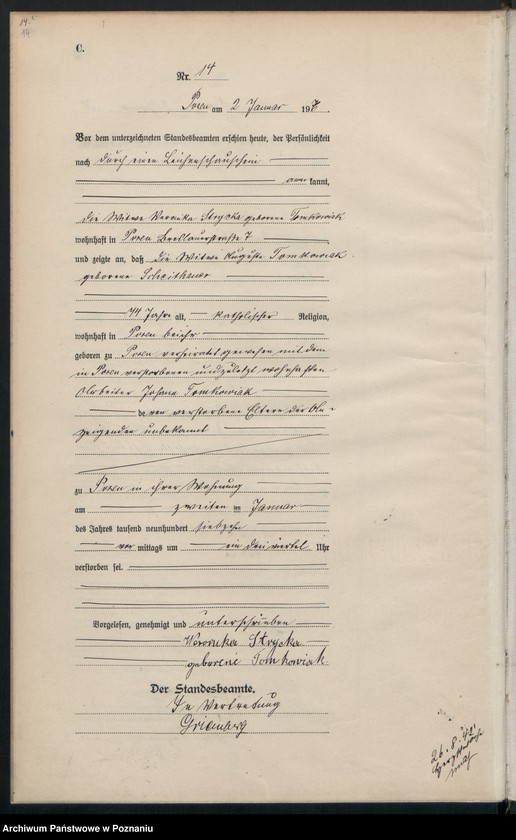 14.
14
C.
Nr. 14
Posen am 2 Januar 1917.
Vor dem unterzeichneten Standesbeamten erschien heute, der Persönlichkeit
nach durch einen Leichenschauschein
aner kannt,
die Witwe Veronka Strycka geborene Tomkowiak
wohnhaft in Posen Breslauerstraße 7
und zeigte an, daß die Witwe Auguste Tomkowiak
geborene
44 Jahre alt, katholischer Religion,
wohnhaft in Posen bei ihr
geboren zu Posen verheiratet gewesen mit dem
in Posen verstorbenen und zuletzt wohnhaften
Arbeiter Johann Tomkowiak
de ren verstorbene Eltern der An-
zeigenden unbekannt
zu Posen in ihrer Wohnung
am zweiten im Januar
des Jahres tausend neunhundert siebzehn
vor mittags um ein dreiviertel Uhr
verstorben sei.
Vorgelesen, genehmigt und unterschrieben
Veronka Strycka
geborene Tomkowiak
Der Standesbeamte.
In Vertretung
26.8.42
Archiwum Państwowe w Poznaniu